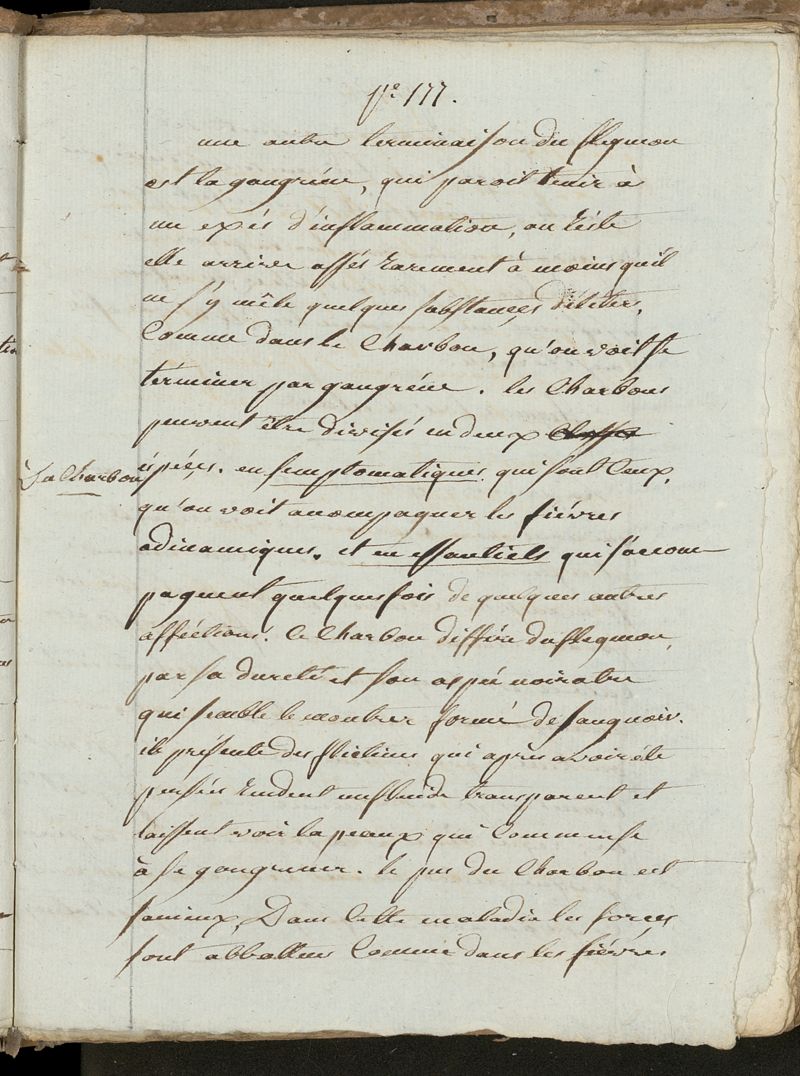 pe. 177.
une autre terminaison du flegmon
est la gangréne, qui paroit tenir à
un expés d'inflammation, au réste
elle arrive assés rarement à moins qu'il
ne s'y mêle quelques substances délétér,
Comme dans le Charbon, qu'on voit se
términer par gangréne. les Charbons
peuvent être divisés en deux
éspéces. en symptomatiques qui sont Ceux,
Le Charbon
qu'on voit accompagner les fiévres
adinamiques. et en essentiels qui s'accom
pagnent quelques fois de quelques autres
afféctions. le Charbon différe du flegmon,
par sa dureté et son aspé noiratre
qui semble le montrer formé de sang noir.
il présente des flictines qui après avoir été
persées rendent un fluide transparent et
laissent voir la peaux qui Commense
à se gangrener. le pus du Charbon est
sanieux, Dans Cette maladie les forces
sont abbattues Comme dans les fiévres